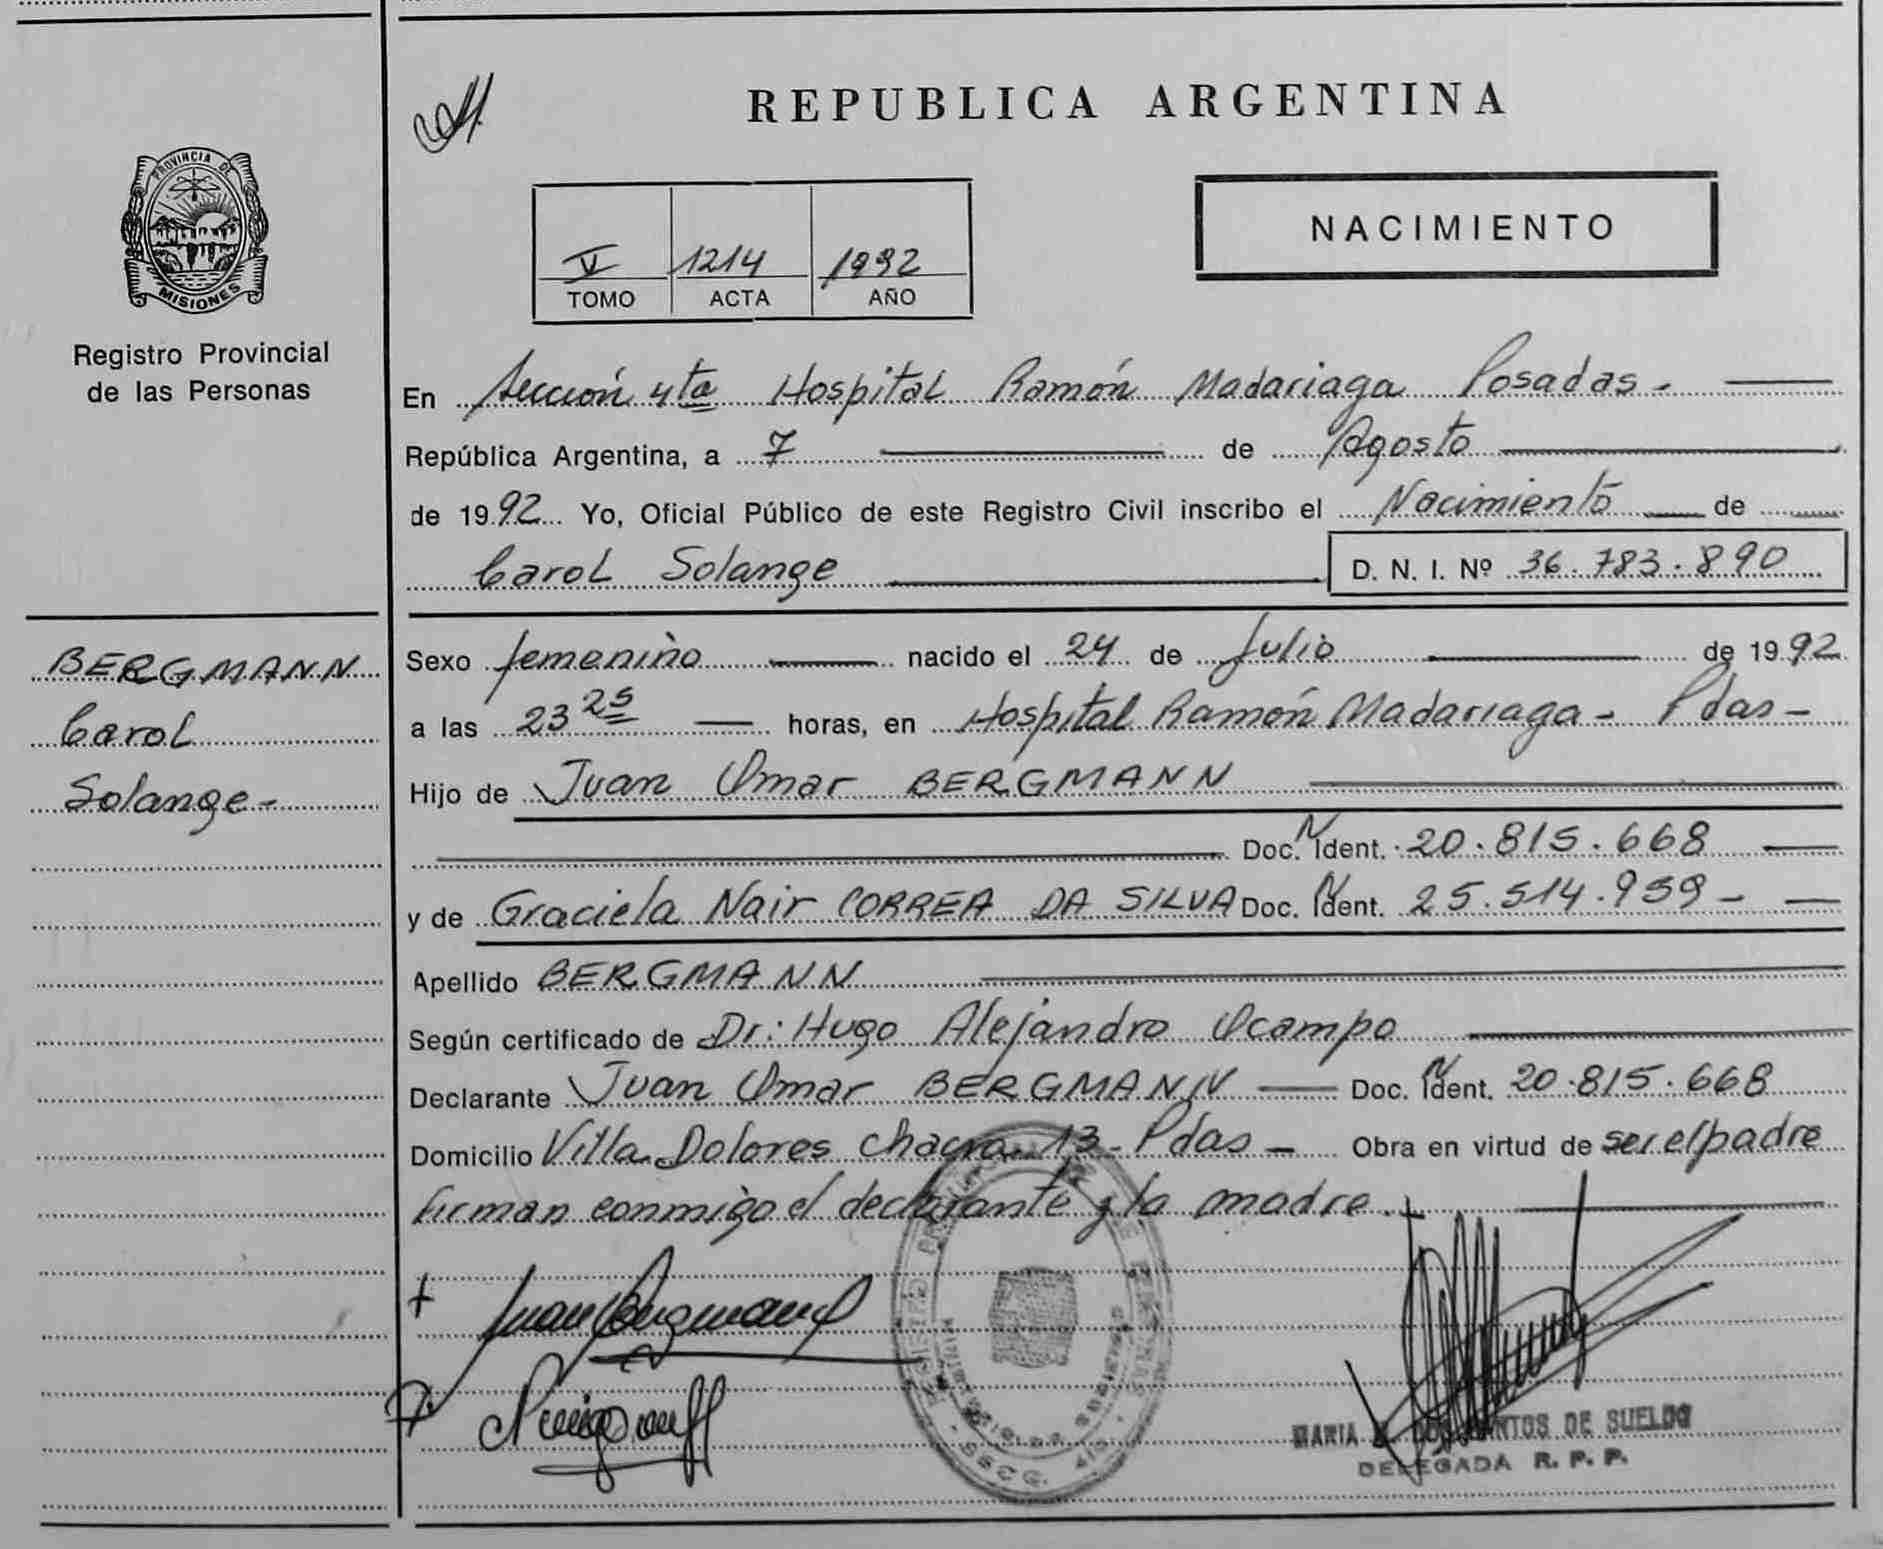 REPUBLICA ARGENTINA
PROVINCIA DE
MISIONES
Registro Provincial
de las Personas
NACIMIENTO
V 1214 1992
TOMO ACTA AÑO
En Sección 4ta Hospital Ramón Madariaga Posadas -
República Argentina, a 7 de Agosto
de 1992 Yo, Oficial Público de este Registro Civil inscribo el Nacimiento de
Carol Solange D. N. I. Nº 36.783.890
BERGMANN
Carol
Solange -
Sexo femenino nacido el 24 de Julio de 1992
a las 23 25 horas, en Hospital Ramón Madariaga - Pdas -
Hijo de Juan Omar BERGMANN
Doc. N Ident. 20.815.668
y de Graciela Nair CORREA DA SILVA Doc. N Ident. 25.514.959 -
Apellido BERGMANN
Según certificado de Dr: Hugo Alejandro Ocampo
Declarante Juan Omar BERGMANN Doc. N Ident. 20.815.668
Domicilio Villa Dolores Chacra 13 - Pdas - Obra en virtud de ser el padre
firman conmigo el declarante y la madre.
Juan Bergmann
MARIA SANTOS DE SUELDO
DELEGADA R. P. P.